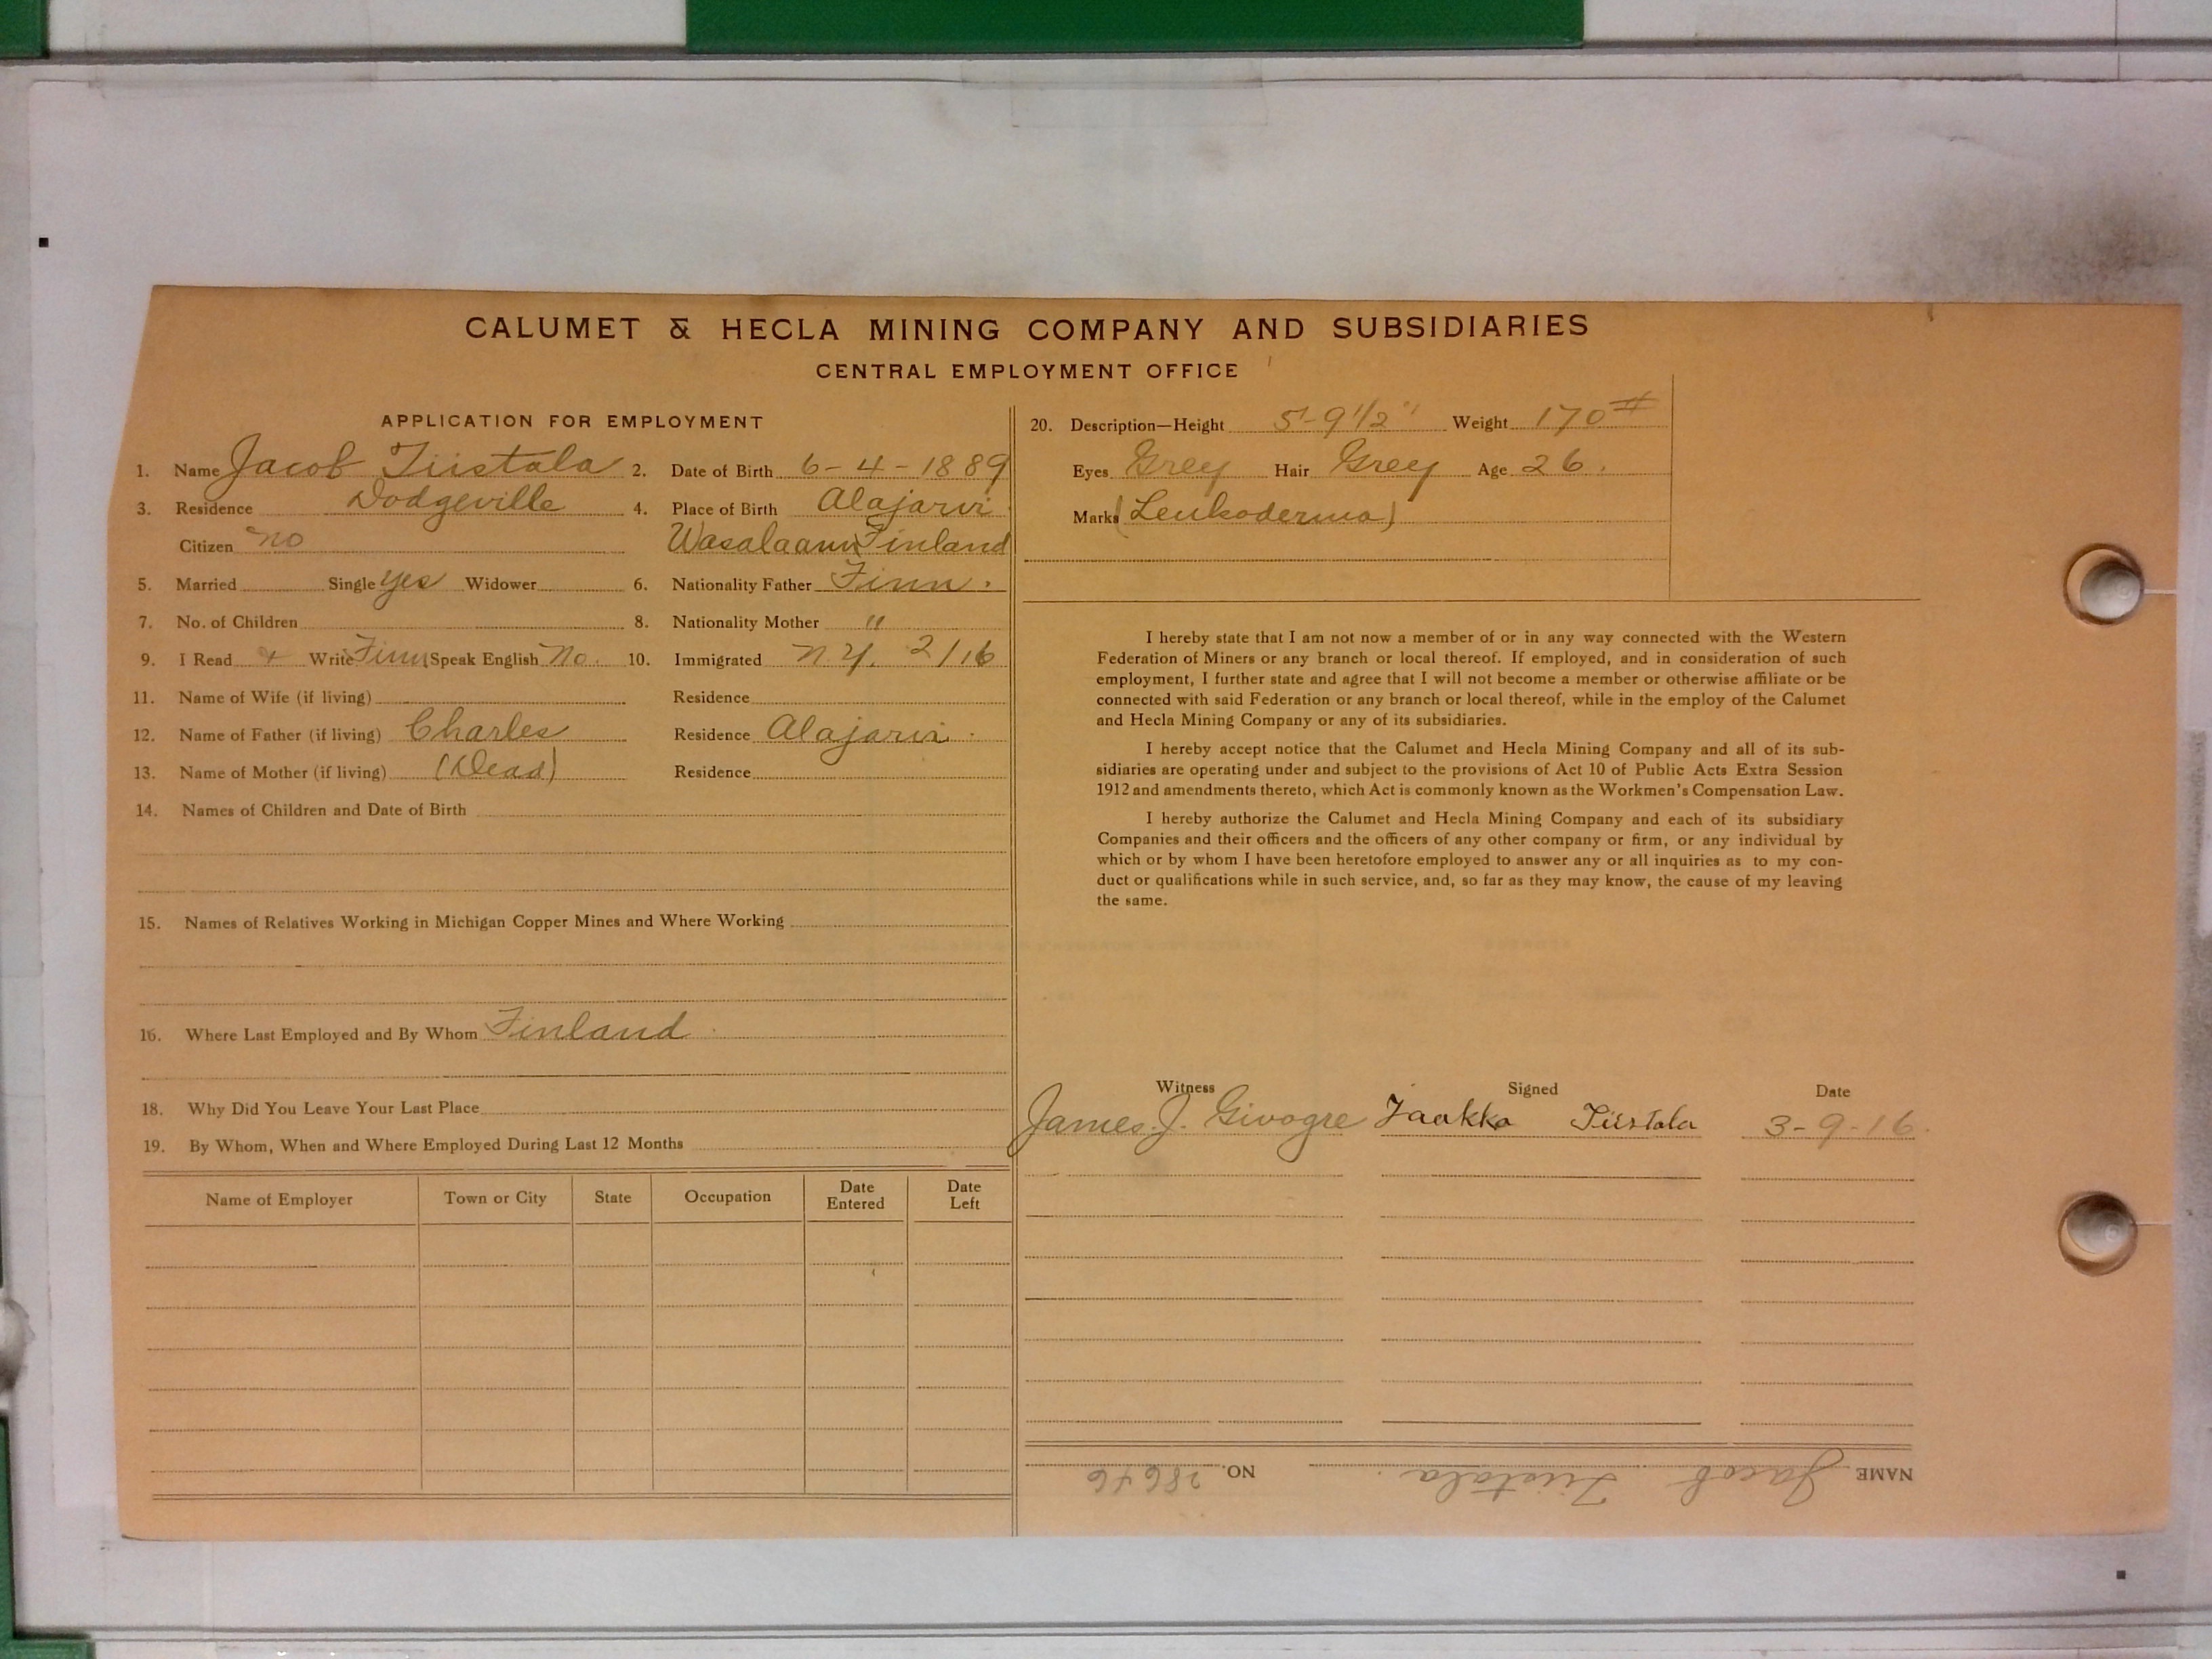 CALUMET & HECLA MINING COMPANY AND SUBSIDIARIES
CENTRAL EMPLOYMENT OFFICE
APPLICATION FOR EMPLOYMENT
1. Name Jacob Tiistola 2. Date of Birth 6-4-1889
3. Residence Dodgeville 4. Place of Birth Alajarvi
Citizen no Wasalaann Finland
5. Married Single yes Widower 6. Nationality Father Finn.
7. No. of Children 8. Nationality Mother "
9. I Read + Write Finn Speak English No. 10. Immigrated N.Y. 2/16
11. Name of Wife (if living) Residence
12. Name of Father (if living) Charles Residence Alajarvi.
13. Name of Mother (if living) (Dead) Residence
14. Names of Children and Date of Birth
15. Names of Relatives Working in Michigan Copper Mines and Where Working
16. Where Last Employed and By Whom Finland
18. Why Did You Leave Your Last Place
19. By Whom, When and Where Employed During Last 12 Months
Name of Employer Town or City State Occupation Date Entered Date Left
20. Description—Height 5'-9 1/2" Weight 170#
Eyes Grey Hair Grey Age 26.
Marks (Leukoderma)
I hereby state that I am not now a member of or in any way connected with the Western
Federation of Miners or any branch or local thereof. If employed, and in consideration of such
employment, I further state and agree that I will not become a member or otherwise affiliate or be
connected with said Federation or any branch or local thereof, while in the employ of the Calumet
and Hecla Mining Company or any of its subsidiaries.
I hereby accept notice that the Calumet and Hecla Mining Company and all of its sub-
sidiaries are operating under and subject to the provisions of Act 10 of Public Acts Extra Session
1912 and amendments thereto, which Act is commonly known as the Workmen's Compensation Law.
I hereby authorize the Calumet and Hecla Mining Company and each of its subsidiary
Companies and their officers and the officers of any other company or firm, or any individual by
which or by whom I have been heretofore employed to answer any or all inquiries as to my con-
duct or qualifications while in such service, and, so far as they may know, the cause of my leaving
the same.
Witness Signed Date
James J. Givogre Jaakko Tiistola 3-9-16.
NAME Jacob Tiistola. NO. 28646